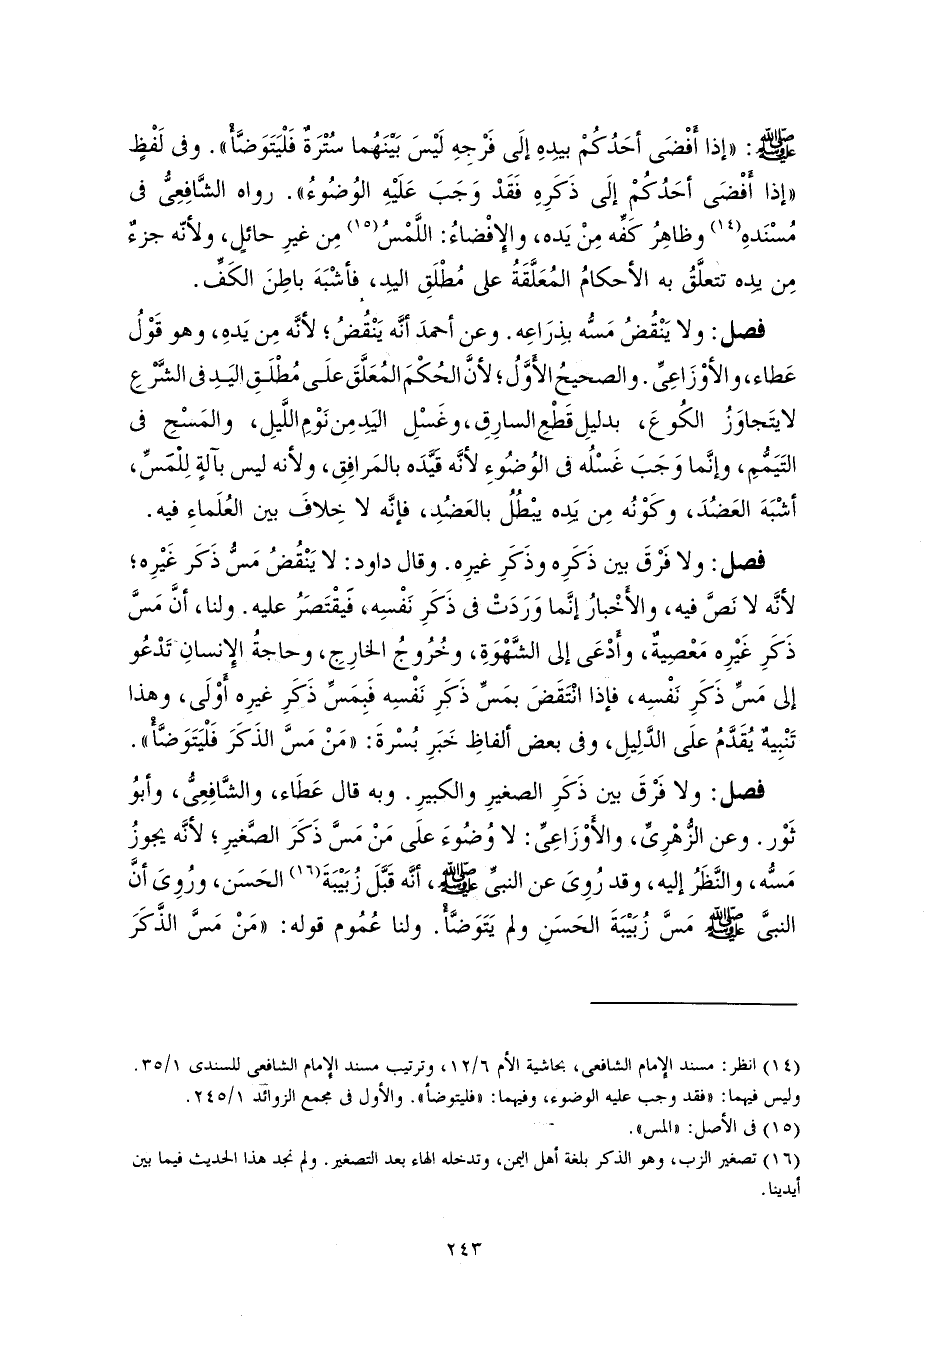 ﷺ: «إذا أَفْضَى أحَدُكُمْ بيدِهِ إلَى فَرْجِهِ لَيْسَ بَيْنَهُما سُتْرَةٌ فَلْيَتَوَضَّأْ». وفى لَفْظٍ
«إذا أَفْضَى أحَدُكُمْ إلَى ذَكَرِهِ فَقَدْ وَجَبَ عَلَيْهِ الوُضُوءُ». رواه الشَّافِعِىُّ فى
مُسْنَدِه(١٤) وظاهِرُ كَفِّه مِنْ يَده، والإِفْضاءُ: اللَّمْسُ(١٥) مِن غيرِ حائلٍ، ولأنّه جزءٌ
مِن يدِه تتعلَّقُ به الأحكامُ المُعَلَّقَةُ على مُطْلَقِ اليدِ، فأشْبَهَ باطِنَ الكَفِّ.
فصل: ولا يَنْقُضُ مَسُّه بذِرَاعِه. وعن أحمدَ أنَّه يَنْقُضُ؛ لأنَّه مِن يَدِهِ، وهو قَوْلُ
عَطاء، والأوْزَاعِىِّ. والصحيحُ الأَوَّلُ؛ لأنَّ الحُكْمَ المُعَلَّقَ علـى مُطْلَـقِ اليَـدِ فى الشَّرْعِ
لا يَتجاوَزُ الكُوعَ، بدليلِ قَطْعِ السارِقِ، وغَسْلِ اليَدِ مِن نَوْمِ اللَّيلِ، والمَسْحِ فى
التَيَمُّمِ، وإنَّما وَجَبَ غَسْلُه فى الوُضُوءِ لأنَّه قَيَّدَه بالمَرافِقِ، ولأنه ليس بآلةٍ لِلْمَسِّ،
أشْبَهَ العَضُدَ، وكَوْنُه مِن يَدِه يبْطُلُ بالعَضُدِ، فإنَّه لا خِلافَ بين العُلَماءِ فيه.
فصل: ولا فَرْقَ بين ذَكَرِه وذَكَرِ غيرِه. وقال داود: لا يَنْقُضُ مَسُّ ذَكَرِ غَيْرِه؛
لأنَّه لا نَصَّ فيه، والأخْبارُ إنَّما وَرَدَتْ فى ذَكَرِ نَفْسِه، فَيقْتَصَرُ عليه. ولنا، أنَّ مَسَّ
ذَكَرِ غَيْرِه مَعْصِيةٌ، وأَدْعَى إلى الشَّهْوَةِ، وخُرُوجُ الخارِجِ، وحاجةُ الإِنسانِ تَدْعُو
إلى مَسِّ ذَكَرِ نَفْسِه، فإذا انْتَقَضَ بمَسِّ ذَكَرِ نَفْسِه فَبِمَسِّ ذَكَرِ غيرِه أَوْلَى، وهذا
تَنْبِيهٌ يُقَدَّمُ على الدَّلِيلِ، وفى بعض ألفاظِ خَبَرِ بُسْرةَ: «مَنْ مَسَّ الذَكَرَ فَلْيَتَوَضَّأْ».
فصل: ولا فَرْقَ بين ذَكَرِ الصغيرِ والكبيرِ. وبه قال عَطَاء، والشَّافِعِىُّ، وأبوُ
ثَوْرٍ. وعن الزُّهْرِىِّ، والأَوْزاعِىِّ: لا وُضُوءَ على مَنْ مَسَّ ذَكَرَ الصَّغيرِ؛ لأنَّه يجوزُ
مَسُّه، والنَّظَرُ إليه، وقد رُوِىَ عن النبىِّ ﷺ، أنَّه قَبَّلَ زُبَيْبَةَ(١٦) الحَسَن، ورُوِىَ أنَّ
النبىَّ ﷺ مَسَّ زُبَيْبَةَ الحَسَنِ ولم يَتَوَضَّأْ. ولنا عُمُوم قوله: «مَنْ مَسَّ الذَّكَرَ
(١٤) انظر: مسند الإمام الشافعى، بحاشية الأم ١٢/٦، وترتيب مسند الإمام الشافعى للسندى ٣٥/١.
وليس فيهما: «فقد وجب عليه الوضوء، وفيهما: «فليتوضأ». والأول فى مجمع الزوائد ٢٤٥/١.
(١٥) فى الأصل: «المس».
(١٦) تصغير الزب، وهو الذكر بلغة أهل اليمن، وتدخله الهاء بعد التصغير. ولم نجد هذا الحديث فيما بين
أيدينا.
٢٤٣